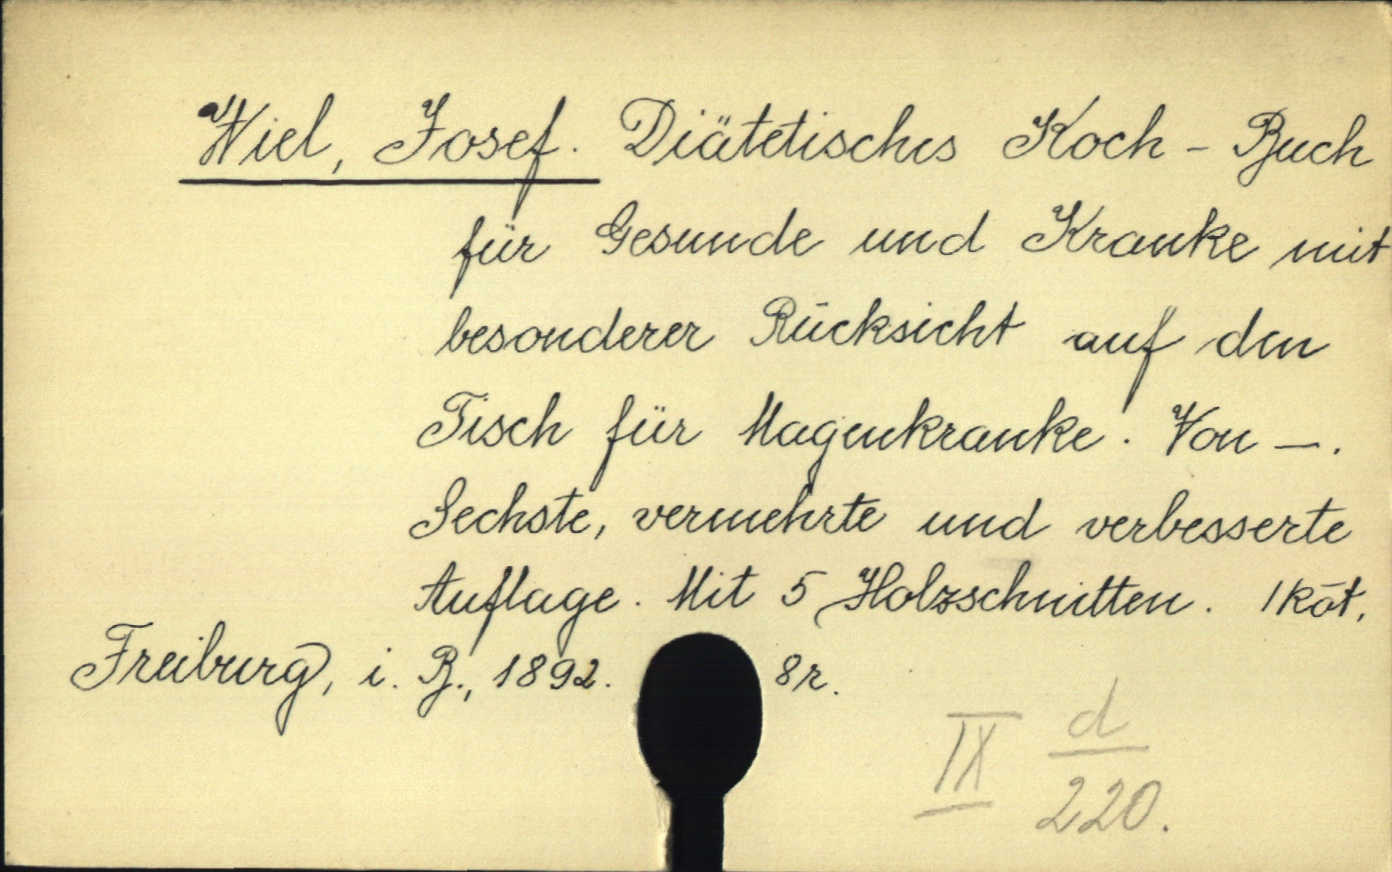 Wiel, Josef. Diätetisches Koch-Buch
für Gesunde und Kranke mit
besonderer Rücksicht auf den
Tisch für Magenkranke. Von —.
Sechste, vermehrte und verbesserte
Auflage. Mit 5 Holzschnitten. 1 köt.
Freiburg, i. B., 1892. 8r.
IX d/220.